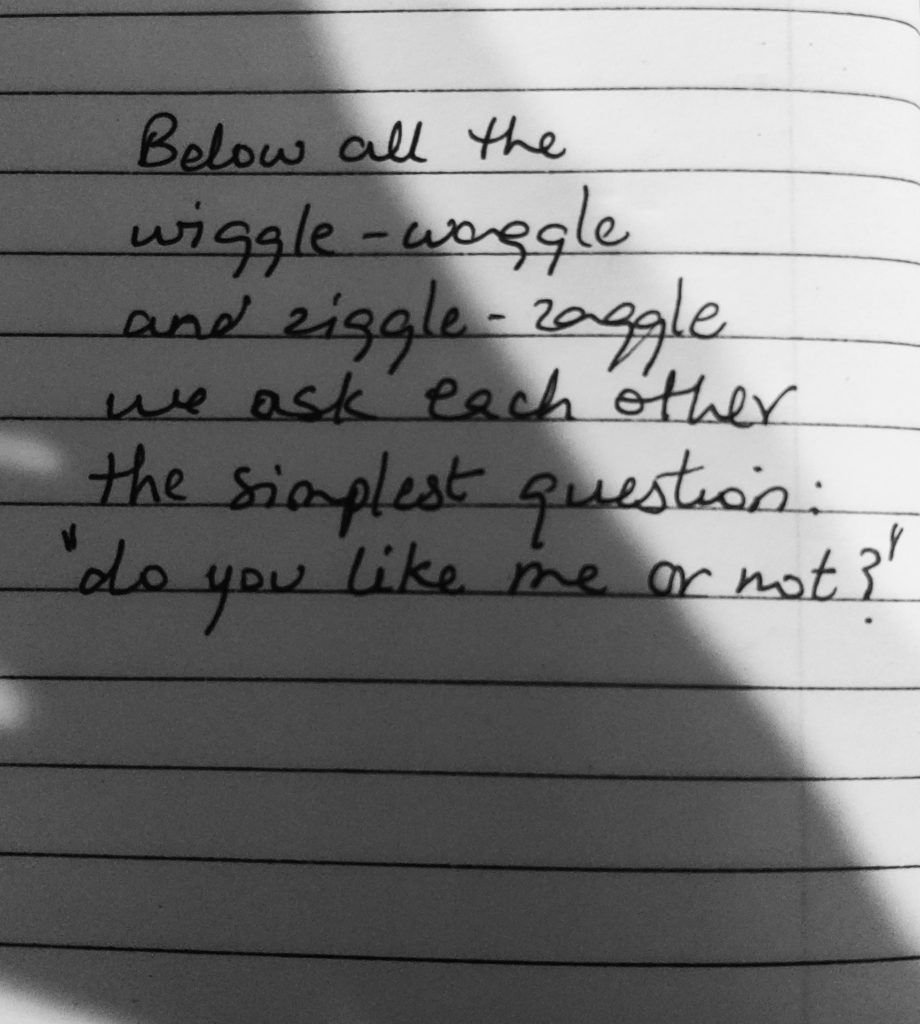 Below all the
wiggle-waggle
and ziggle-zaggle
we ask each other
the simplest question:
"do you like me or not?"